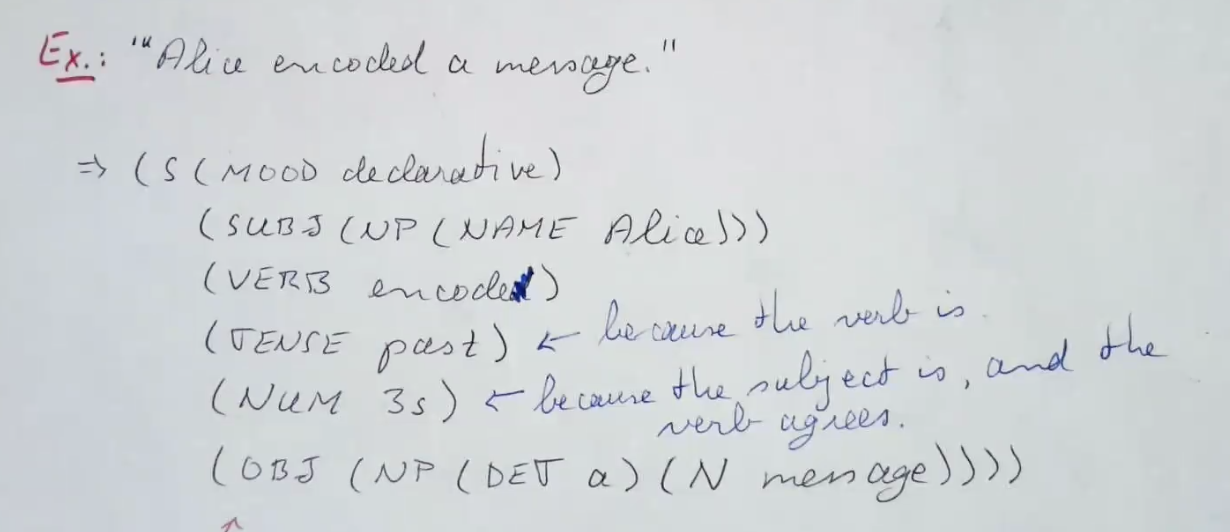 Ex.: "“Alice encoded a message."
⇒ (S (MOOD declarative)
(SUBJ (NP (NAME Alice)))
(VERB encode)
(TENSE past) ← because the verb is.
(NUM 3s) ← because the subject is, and the
verb agrees.
(OBJ (NP (DET a) (N message))))